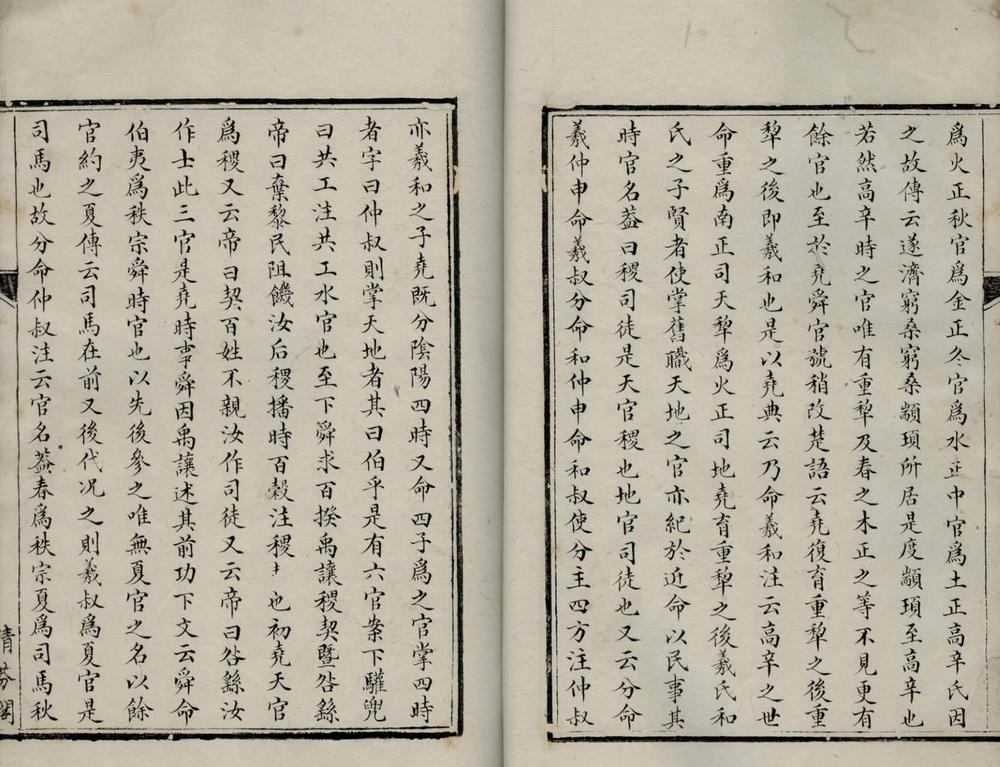 爲火正秋官爲金正冬官爲水正中官爲土正高辛氏因
之故傳云遂濟窮桑窮桑顓頊所居是度顓頊至高辛也
若然高辛時之官唯有重犂及春之木正之等不見更有
餘官也至於堯舜官號稍改楚語云堯復育重犂之後重
犂之後即羲和也是以堯典云乃命羲和注云高辛之世
命重爲南正司天犂爲火正司地堯育重犂之後羲氏和
氏之子賢者使掌舊職天地之官亦紀於近命以民事其
時官名葢曰稷司徒是天官稷也地官司徒也又云分命
羲仲申命羲叔分命和仲申命和叔使分主四方注仲叔
亦羲和之子堯既分隂陽四時又命四子爲之官掌四時
者字曰仲叔則掌天地者其曰伯乎是有六官案下驩兜
曰共工注共工水官也至下舜求百揆禹讓稷契曁咎繇
帝曰棄黎民阻饑汝后稷播時百穀注稷也初堯天官
爲稷又云帝曰契百姓不親汝作司徒又云帝曰咎繇汝
作士此三官是堯時事舜因禹讓述其前功下文云舜命
伯夷爲秩宗舜時官也以先後參之唯無夏官之名以餘
官約之夏傳云司馬在前又後代况之則羲叔爲夏官是
司馬也故分命仲叔注云官名葢春爲秩宗夏爲司馬秋
清芬閣